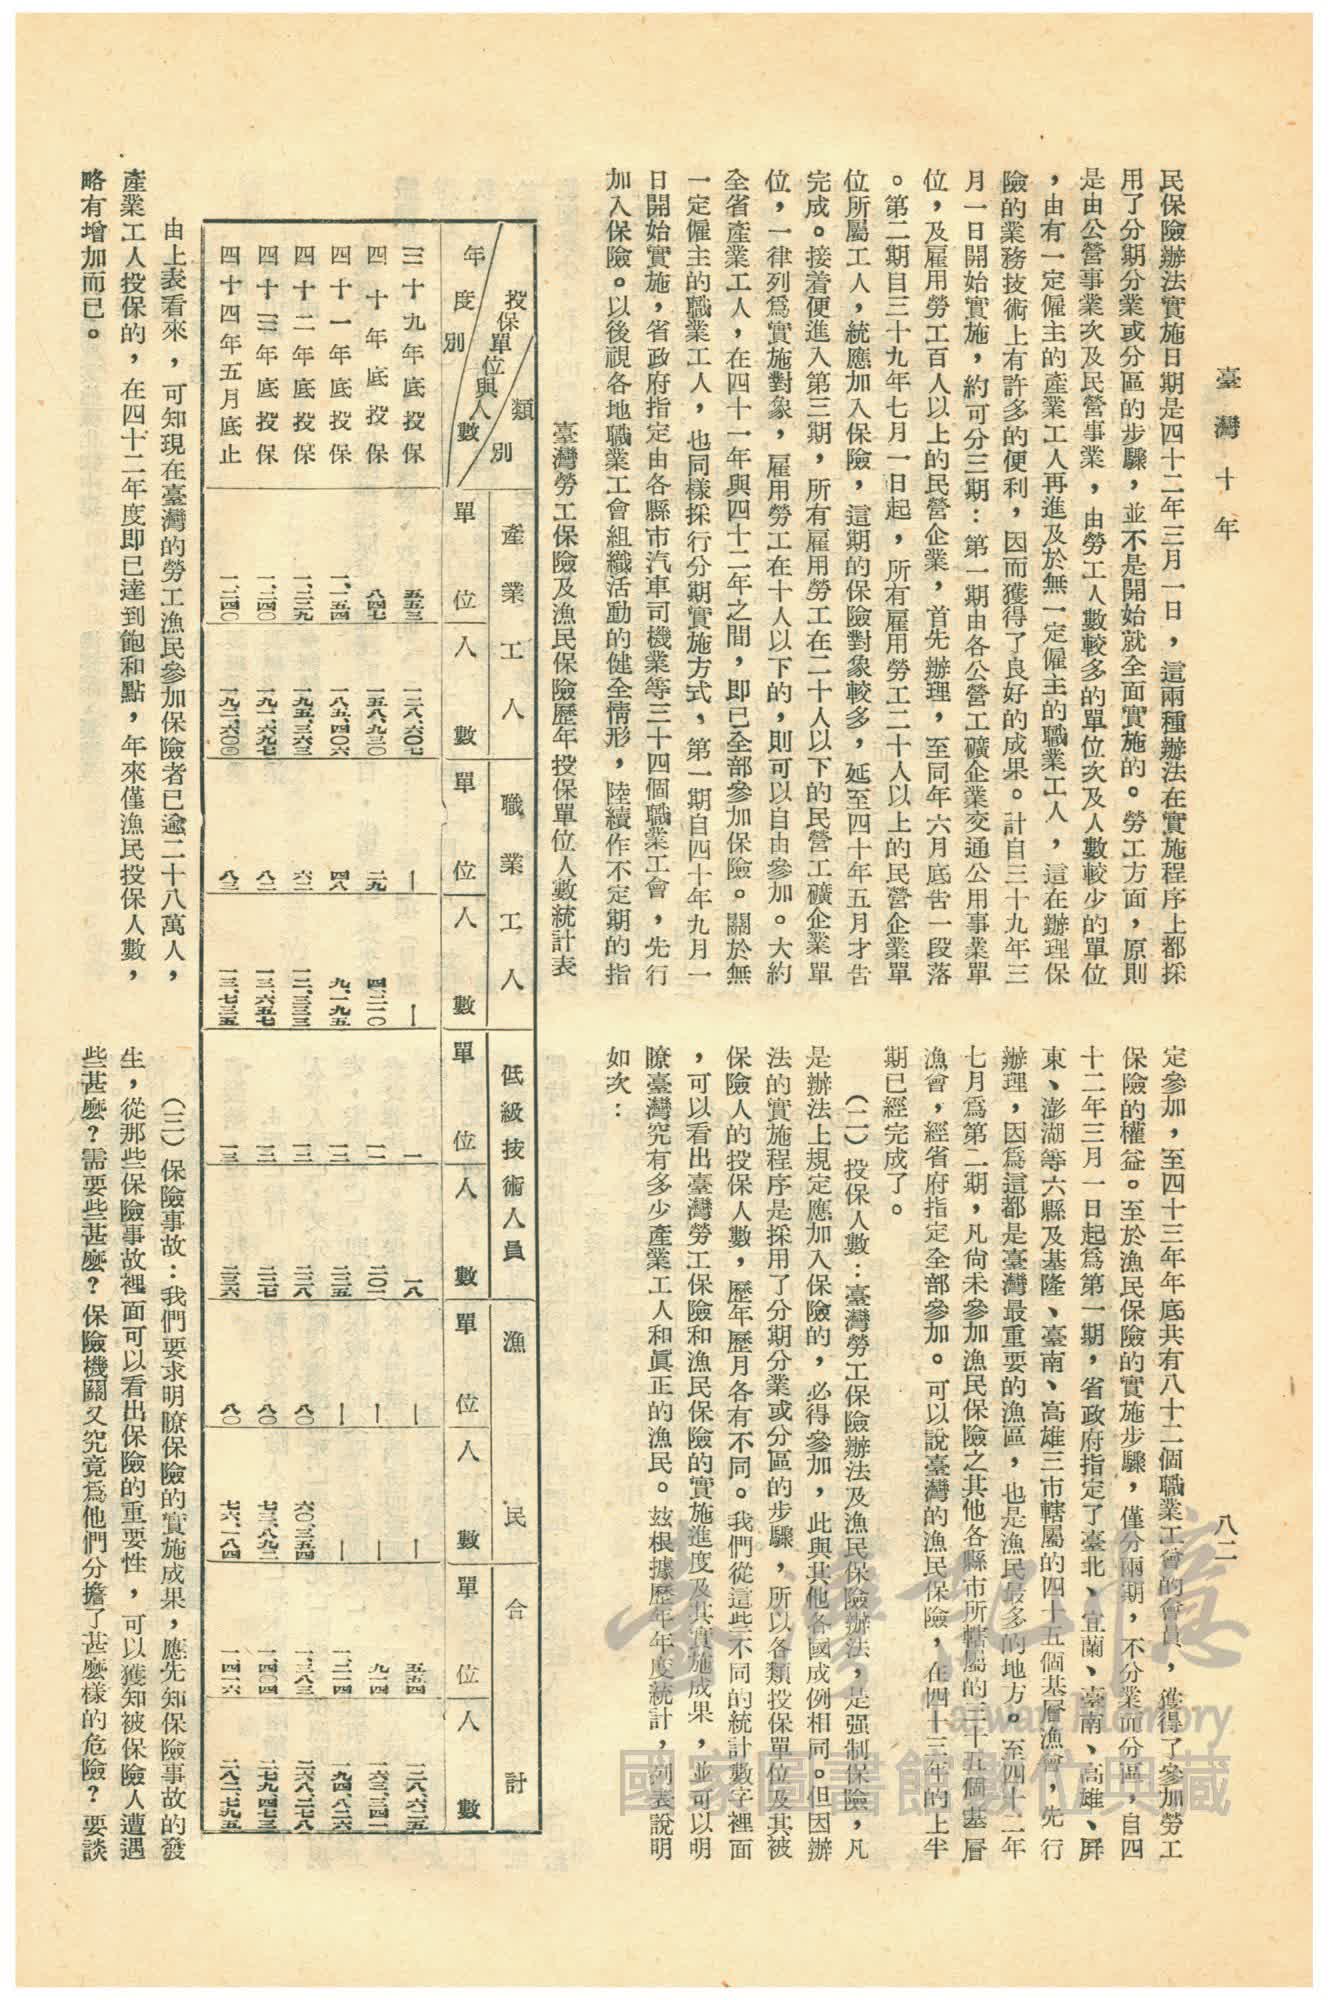 臺灣十年
八二
民保險辦法實施日期是四十二年三月一日，這兩種辦法在實施程序上都採
用了分期分業或分區的步驟，並不是開始就全面實施的。勞工方面，原則
是由公營事業次及民營事業，由勞工人數較多的單位次及人數較少的單位
，由有一定僱主的產業工人再進及於無一定僱主的職業工人，這在辦理保
險的業務技術上有許多的便利，因而獲得了良好的成果。計自三十九年三
月一日開始實施，約可分三期：第一期由各公營工礦企業交通公用事業單
位，及雇用勞工百人以上的民營企業，首先辦理，至同年六月底告一段落
。第二期自三十九年七月一日起，所有雇用勞工二十人以上的民營企業單
位所屬工人，統應加入保險，這期的保險對象較多，延至四十年五月才告
完成。接着便進入第三期，所有雇用勞工在二十人以下的民營工礦企業單
位，一律列爲實施對象，雇用勞工在十人以下的，則可以自由參加。大約
全省產業工人，在四十一年與四十二年之間，即已全部參加保險。關於無
一定僱主的職業工人，也同樣採行分期實施方式，第一期自四十年九月一
日開始實施，省政府指定由各縣市汽車司機業等三十四個職業工會，先行
加入保險。以後視各地職業工會組織活動的健全情形，陸續作不定期的指
定參加，至四十三年年底共有八十二個職業工會的會員，獲得了參加勞工
保險的權益。至於漁民保險的實施步驟，僅分兩期，不分業而分區，自四
十二年三月一日起爲第一期，省政府指定了臺北、宜蘭、臺南、高雄、屛
東、澎湖等六縣及基隆、臺南、高雄三市轄屬的四十五個基層漁會，先行
辦理，因爲這都是臺灣最重要的漁區，也是漁民最多的地方。至四十二年
七月爲第二期，凡尚未參加漁民保險之其他各縣市所轄屬的三十五個基層
漁會，經省府指定全部參加。可以說臺灣的漁民保險，在四十三年的上半
期已經完成了。
（二）投保人數：臺灣勞工保險辦法及漁民保險辦法，是强制保險，凡
是辦法上規定應加入保險的，必得參加，此與其他各國成例相同。但因辦
法的實施程序是採用了分期分業或分區的步驟，所以各類投保單位及其被
保險人的投保人數，歷年歷月各有不同。我們從這些不同的統計數字裡面
，可以看出臺灣勞工保險和漁民保險的實施進度及其實施成果，並可以明
瞭臺灣究有多少產業工人和眞正的漁民。玆根據歷年年度統計，列表說明
如次：
臺灣勞工保險及漁民保險歷年投保單位人數統計表
類別 投保單位與人數 年度別 產業工人 職業工人 低級技術人員 漁民 合計
單位 人數 單位 人數 單位 人數 單位 人數 單位 人數
三十九年底投保 五五三 一二八、六〇七 — — 一 一八 — — 五五四 一二八、六二五
四十年底投保 八四七 一五八、九三〇 二九 四、二一〇 一一 二〇一 — — 九一四 一六三、三四一
四十一年底投保 一、一五四 一八五、四〇六 四八 九、一九五 一二 二二五 — — 一、二一四 一九四、八二六
四十二年底投保 一、二二九 一九五、三六三 六二 一二、三三三 一二 二二八 八〇 六〇、三五四 一、三八三 二六八、二七八
四十三年底投保 一、二四〇 一九一、六九七 八二 一三、六五七 一二 二二七 八〇 七三、八九二 一、四〇四 二七九、四七三
四十四年五月底止 一、二四〇 一九二、六〇〇 八三 一三、七三五 一三 二三六 八〇 七六、一八四 一、四一六 二八二、七九五
由上表看來，可知現在臺灣的勞工漁民參加保險者已逾二十八萬人，
產業工人投保的，在四十二年度即已達到飽和點，年來僅漁民投保人數，
略有增加而已。
（三）保險事故：我們要求明瞭保險的實施成果，應先知保險事故的發
生，從那些保險事故裡面可以看出保險的重要性，可以獲知被保險人遭遇
些甚麼？需要些甚麼？保險機關又究竟爲他們分擔了甚麼樣的危險？要談
臺灣記憶
Taiwan Memory
國家圖書館數位典藏